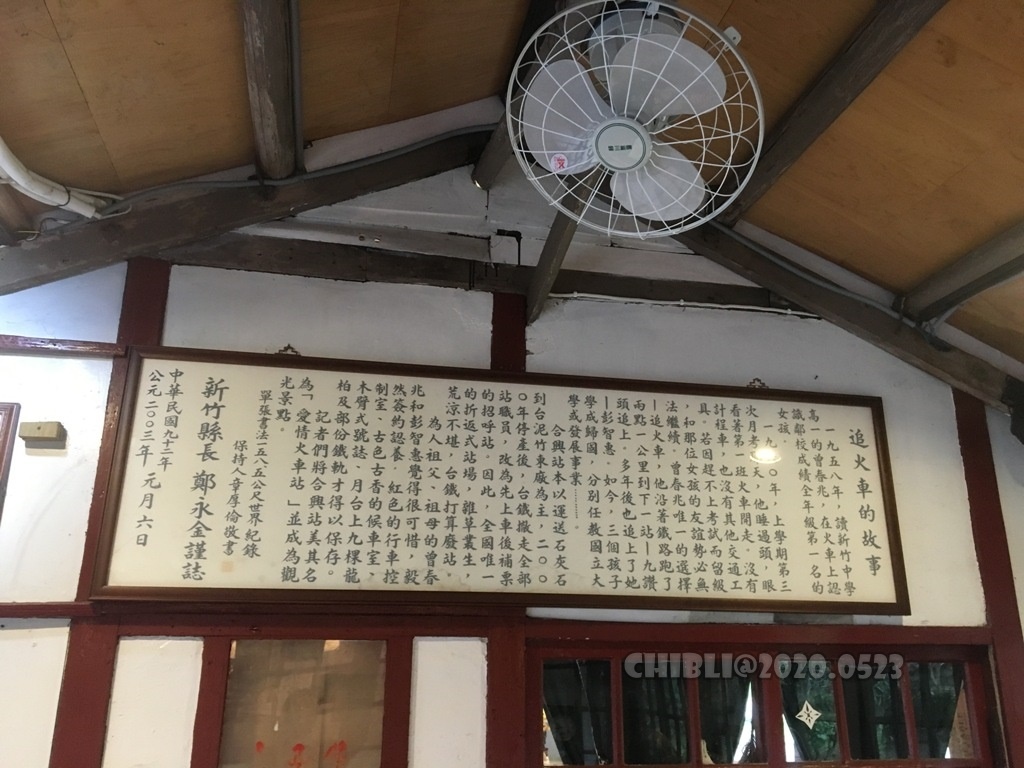 追火車的故事
一九五八年，讀新竹中學
高一的曾春兆，在火車上認
識鄰校成績全年級第一名的
女孩
一九六〇年，上學期第三
次月考
天，他睡過頭，眼
看著第一班火車開走。沒有
計程車，也沒有其他交通工
具。若因趕不上考試而留級
，和那位女孩的友誼勢必無
法繼續。曾春兆唯一的選擇
—追火車，他沿著鐵路跑了
兩點一公里到下一站—九讚
頭追上。多年後也追上了她
—彭智惠。如今，三個孩子
學成歸國，分別任教國立大
學或發展事業………
合興站本以運送石灰石
到台泥竹東廠為主，二〇〇
〇年停產後，台鐵撤走全部
站職員，改為先上車後補票
的招呼站。因此，全國唯一
的折返式站場，雜草叢生，
荒涼不堪，台鐵打算廢站。
為人祖父、祖母的曾春
兆和彭智惠覺得很可惜，毅
然簽約認養。紅色的行車控
制室、古色古香的候車室、
木臂式號誌、月台上九棵龍
柏及部份鐵軌才得以保存。
記者們將合興站美其名
為「愛情火車站」並成為觀
光景點。
單張書法一五八五公尺世界紀錄
保持人章厚倫敬書
新竹縣長 鄭永金謹誌
中華民國九十二年
公元二〇〇三年元月六日
CHIBLI@2020.0523